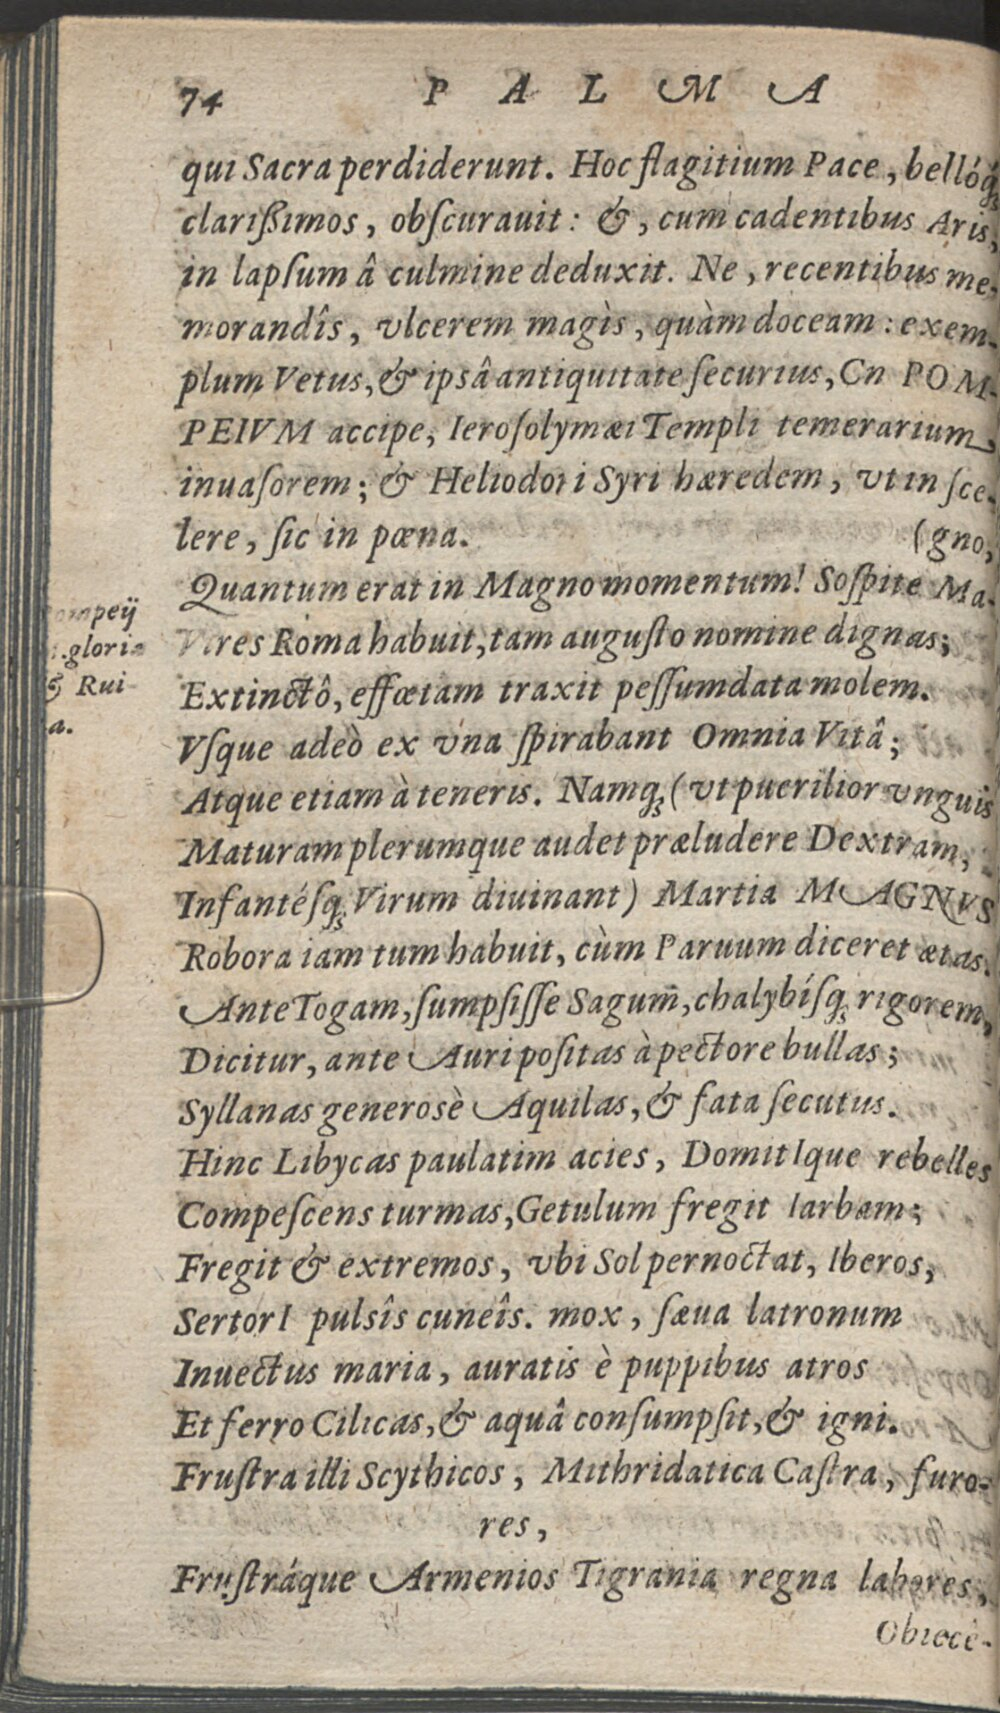 74 PALMA
qui Sacra perdiderunt. Hoc flagitium Pace, bellóq́;
clarißimos, obſcurauit: &, cum cadentibus Aris,
in lapſum â culmine deduxit. Ne, recentibus me-
morandîs, vlcerem magìs, quàm doceam: exem-
plum Vetus, & ipsâ antiquitate ſecurius, Cn POM-
PEIVM accipe, Ieroſolymæi Templi temerarium
inuaſorem; & Heliodori Syri hæredem, vt in ſce-
lere, ſic in pœna.
(gno,
Quantum erat in Magno momentum! Soſpite Ma-
Vires Roma habuit, tam auguſto nomine dignas;
Extinctô, effœtam traxit peſſumdata molem.
Vſque adeò ex vna ſpirabant Omnia Vitâ;
Atque etiam à teneris. Namq; (vt puerilior vnguis
Maturam plerumque audet præludere Dextram,
Infantéſq; Virum diuinant) Martia MAGNVS
Robora iam tum habuit, cùm Paruum diceret ætas.
Ante Togam, ſumpſiſſe Sagum, chalybíſq; rigorem,
Dicitur, ante Auri poſitas à pectore bullas;
Syllanas generosè Aquilas, & fata ſecutus.
Hinc Libycas paulatim acies, DomitIque rebelles
Compeſcens turmas, Getulum fregit Iarbam;
Fregit & extremos, vbi Sol pernoctat, Iberos,
SertorI pulsîs cuneîs. mox, ſæua latronum
Inuectus maria, auratis è puppibus atros
Et ferro Cilicas, & aquâ conſumpſit, & igni.
Fruſtra illi Scythicos, Mithridatica Caſtra, furo-
res,
Fruſtráque Armenios Tigrania regna labores,
Obiecê-
ompeij
gloria
& Rui-
a.